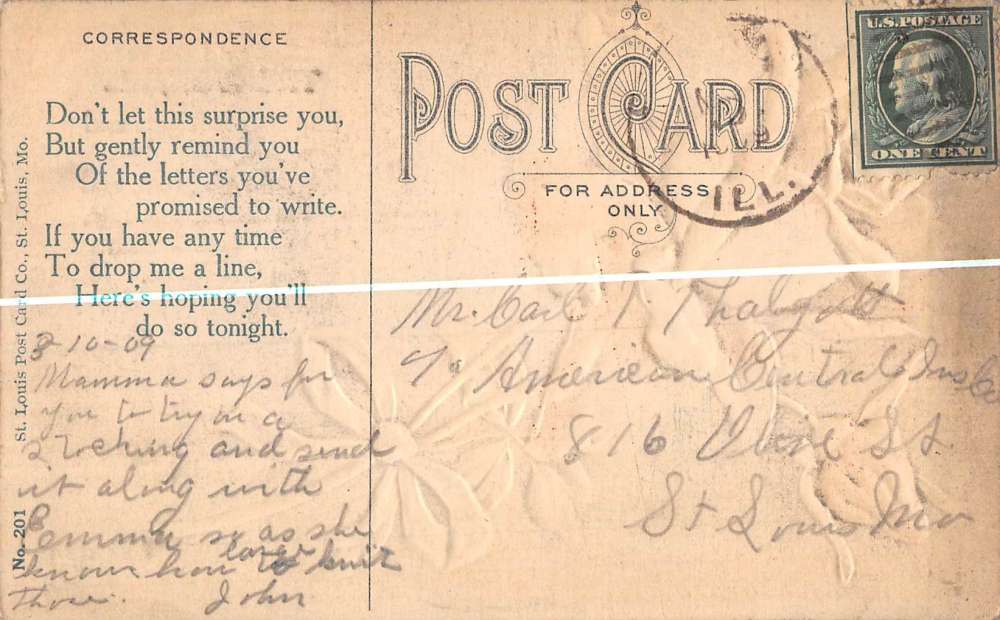 CORRESPONDENCE
Don't let this surprise you,
But gently remind you
Of the letters you've
promised to write.
If you have any time
To drop me a line,
Here's hoping you'll
do so tonight.
3-10-09
Mamma says for
you to try on a
stocking and send
it along with
Emma so as she
knows how large to knit
those. John
St. Louis Post Card Co., St. Louis, Mo.
No. 201
POST CARD
FOR ADDRESS
ONLY
ILL.
U.S. POSTAGE
ONE CENT
Mr. Carl
c/o American Central Ins Co
816 St.
St Louis Mo